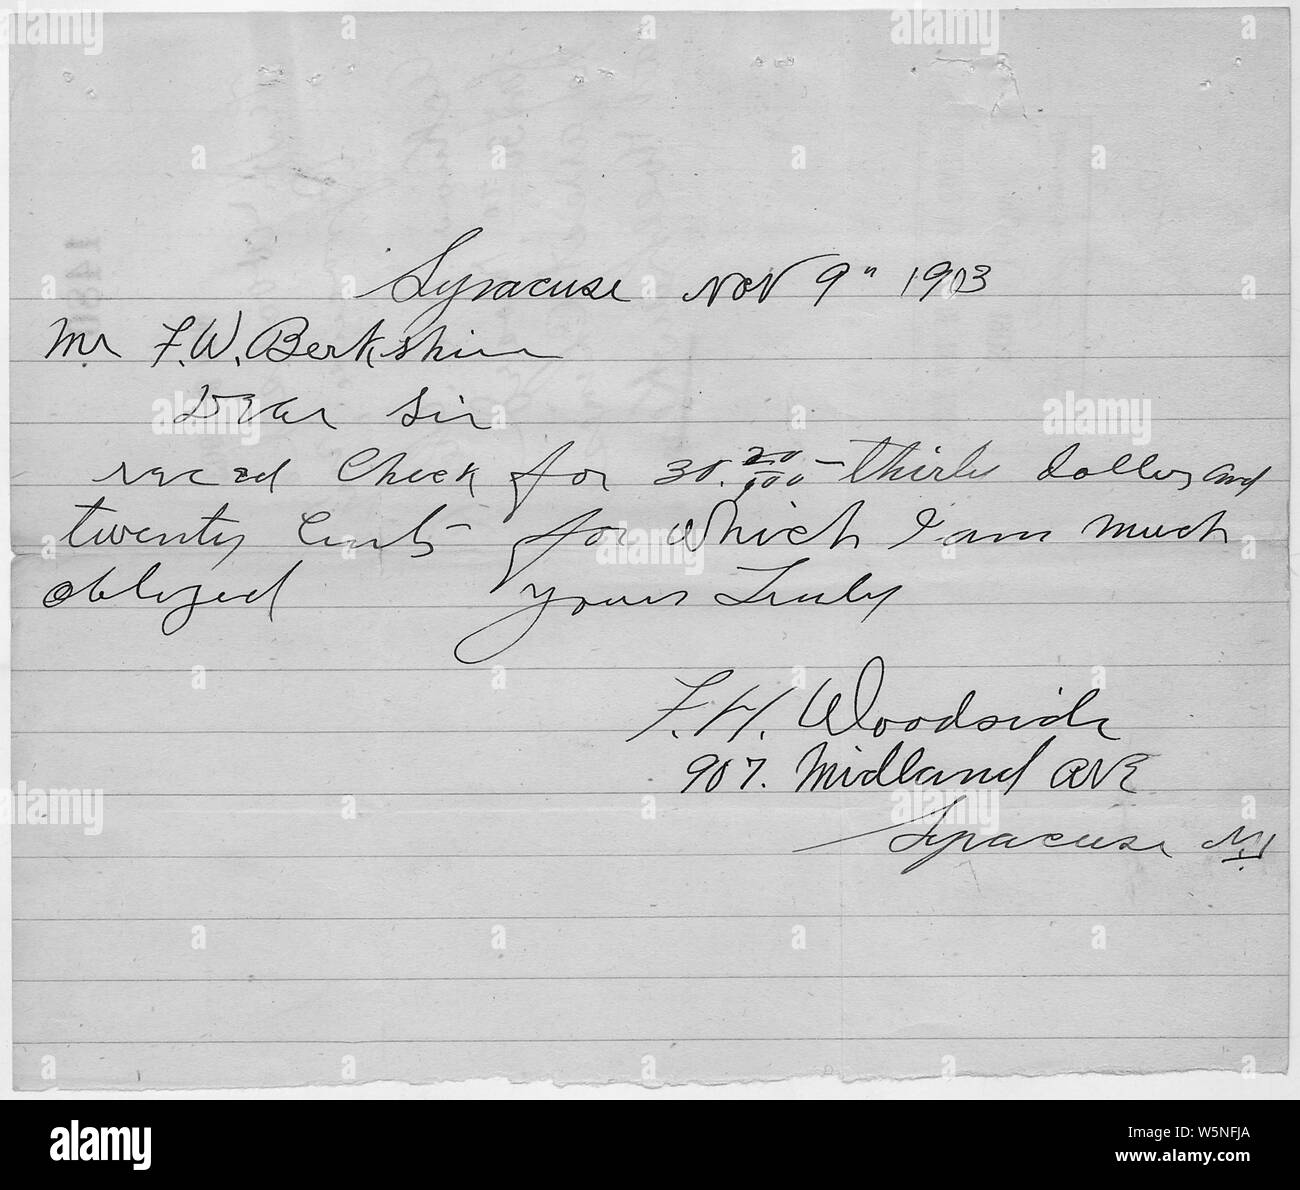 Syracuse Nov 9" 1903
Mr F.W. Berkshire
Dear Sir
recd Check for 30. 20/100 - thirty dollars and
twenty Cents for which I am much
obleged yours Truly
F. H. Woodside
907. Midland AVE
Syracuse NY
alamy
Image ID: W5NFJA
www.alamy.com